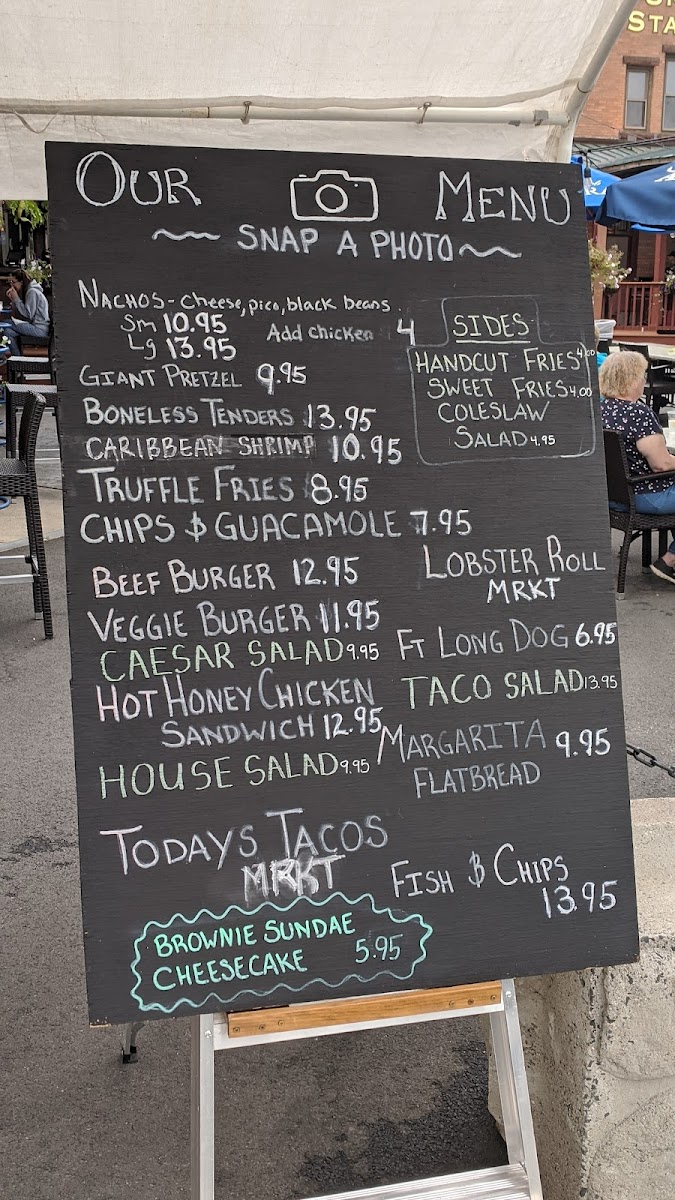 STA
OUR MENU
SNAP A PHOTO
NACHOS - cheese, pico, black beans.
Sm 10.95 Add chicken 4
Lg 13.95
GIANT PRETZEL 9.95
BONELESS TENDERS 13.95
CARIBBEAN SHRIMP 10.95
TRUFFLE FRIES 8.95
CHIPS & GUACAMOLE 7.95
SIDES
HANDCUT FRIES 4.00
SWEET FRIES 4.00
COLESLAW
SALAD 4.95
BEEF BURGER 12.95
VEGGIE BURGER 11.95
CAESAR SALAD 9.95
HOT HONEY CHICKEN
SANDWICH 12.95
HOUSE SALAD 9.95
LOBSTER ROLL
MRKT
FT LONG DOG 6.95
TACO SALAD 13.95
MARGARITA 9.95
FLATBREAD
TODAYS TACOS
MRKT
FISH & CHIPS
13.95
BROWNIE SUNDAE
CHEESECAKE 5.95